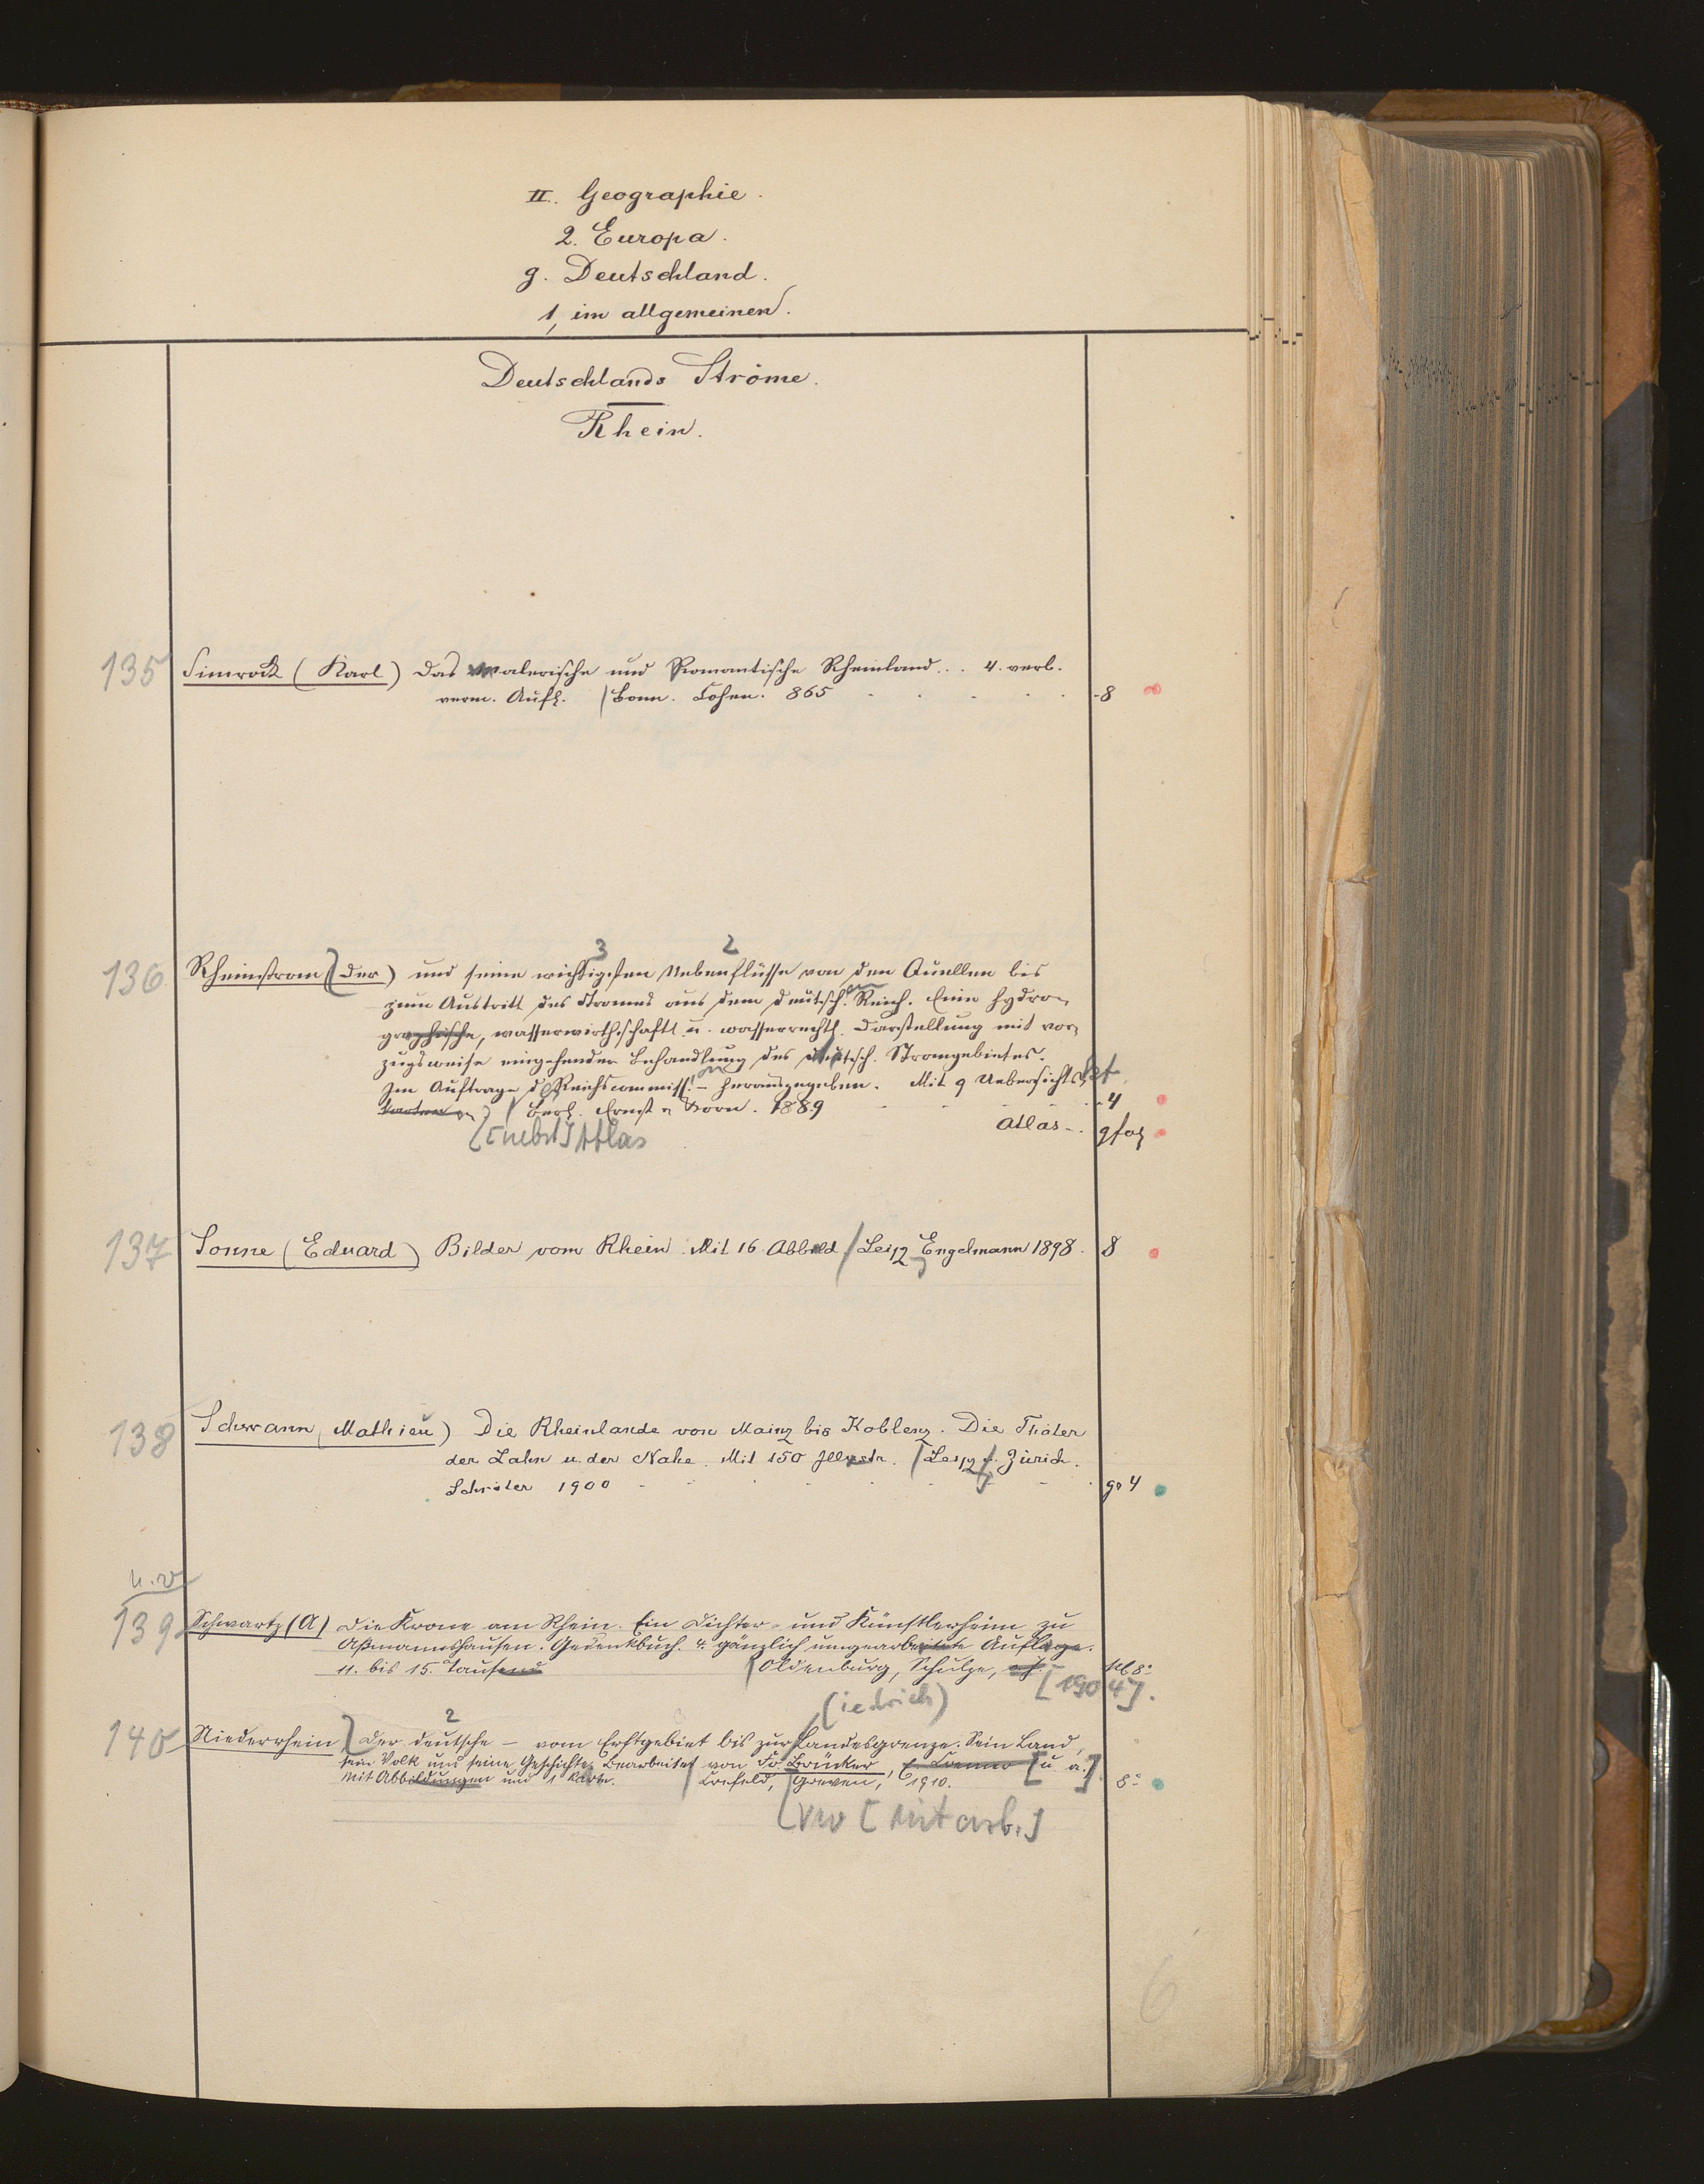 II. Geographie.
2. Europa.
g. Deutschland.
1, im allgemeinen.
Deutschlands Ströme.
Rhein.
135 Simrock (Karl) Das malerische und Romantische Rheinland... 4. verb.
verm. Aufl. Bonn. Cohen. 865 8
3 2
136 Rheinstrom (Der) und seine wichtigsten Nebenflüsse von den Quellen bis
zum Austritt des Stromes aus dem deutsch. Reich. Eine hydro-
graphische, wasserwirthschaftl. u. wasserrechtl. Darstellung mit vor-
zugsweise eingehender Behandlung des deutsch. Stromgebietes.
Im Auftrage d. Reichscommiss. - herausgegeben. Mit 9 Uebersichts
Berl. Ernst u Korn. 1889 4
Atlas.. gfol
[nebst] Atlas
137 Sonne (Eduard) Bilder vom Rhein. Mit 16 Abbild / Leipz Engelmann 1898. 8
138 Schwann (Mathieu) Die Rheinlande von Mainz bis Koblenz. Die Thäler
der Lahn u. der Nahe. Mit 150 Illustr. / Leipz u. Zürich.
Schröter 1900 gr 4
u. v
139 Schwartz (A) Die Krone am Rhein. Ein Dichter- und Künstlerheim zu
Aßmannshausen. Gedenkbuch. 4. gänzlich umgearbeitete Auflage.
11. bis 15. Tausend Oldenburg, Schulze, kl 8°
[1904].
(iedrich)
2
140 Niederrhein Der deutsche - vom Erftgebiet bis zur Landesgrenze. Sein Land,
sein Volk und seine Geschichte. Bearbeitet von Fr. Brücker, [u a.]
Mit Abbildungen und 1 Karte. Crefeld, Greven, 1910. 8°
[Mitarb.]
6